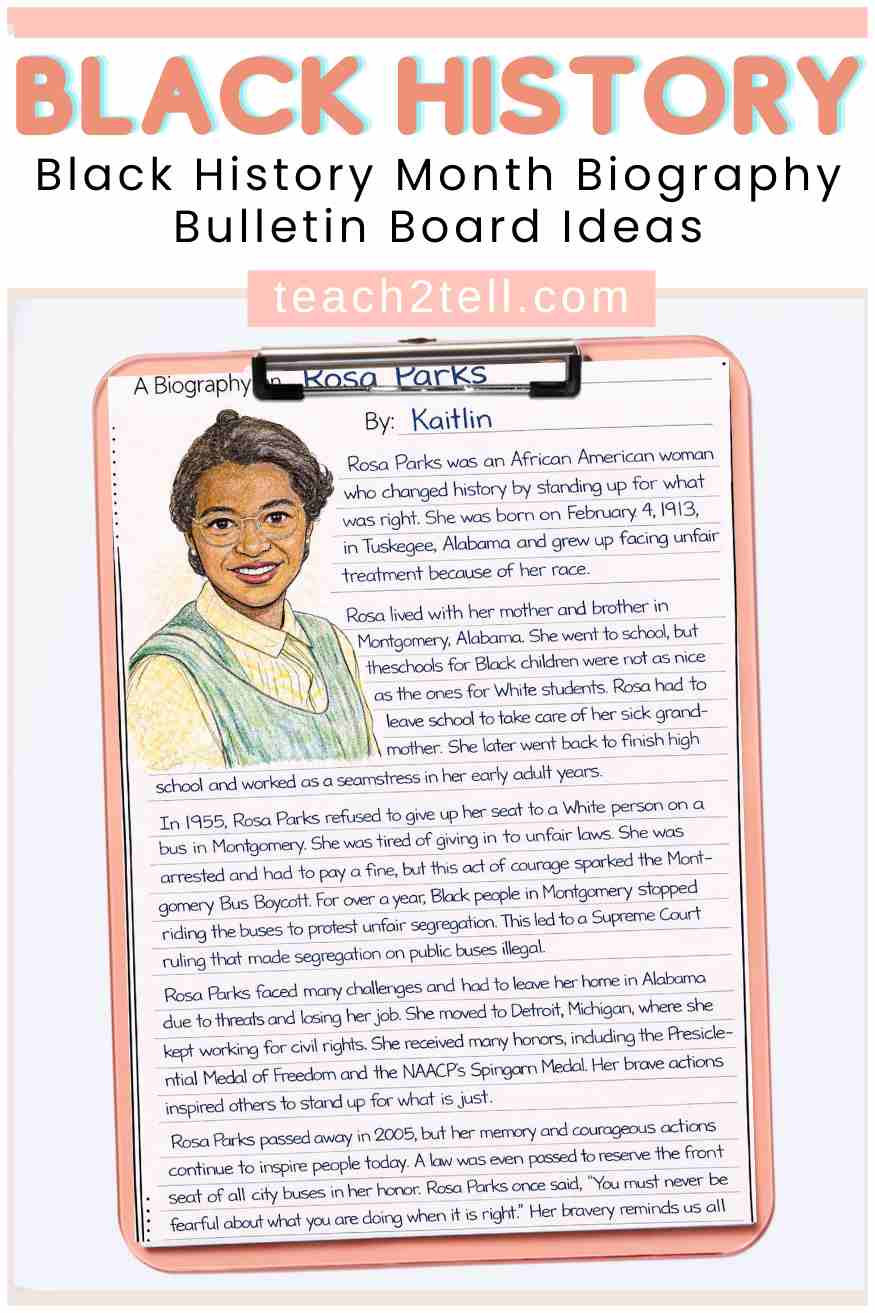 BLACK HISTORY
Black History Month Biography
Bulletin Board Ideas
teach2tell.com
A Biography on Rosa Parks
By: Kaitlin
Rosa Parks was an African American woman
who changed history by standing up for what
was right. She was born on February 4, 1913,
in Tuskegee, Alabama and grew up facing unfair
treatment because of her race.
Rosa lived with her mother and brother in
Montgomery, Alabama. She went to school, but
theschools for Black children were not as nice
as the ones for White students. Rosa had to
leave school to take care of her sick grand-
mother. She later went back to finish high
school and worked as a seamstress in her early adult years.
In 1955, Rosa Parks refused to give up her seat to a White person on a
bus in Montgomery. She was tired of giving in to unfair laws. She was
arrested and had to pay a fine, but this act of courage sparked the Mont-
gomery Bus Boycott. For over a year, Black people in Montgomery stopped
riding the buses to protest unfair segregation. This led to a Supreme Court
ruling that made segregation on public buses illegal.
Rosa Parks faced many challenges and had to leave her home in Alabama
due to threats and losing her job. She moved to Detroit, Michigan, where she
kept working for civil rights. She received many honors, including the Preside-
ntial Medal of Freedom and the NAACP's Spingarn Medal. Her brave actions
inspired others to stand up for what is just.
Rosa Parks passed away in 2005, but her memory and courageous actions
continue to inspire people today. A law was even passed to reserve the front
seat of all city buses in her honor. Rosa Parks once said, "You must never be
fearful about what you are doing when it is right." Her bravery reminds us all